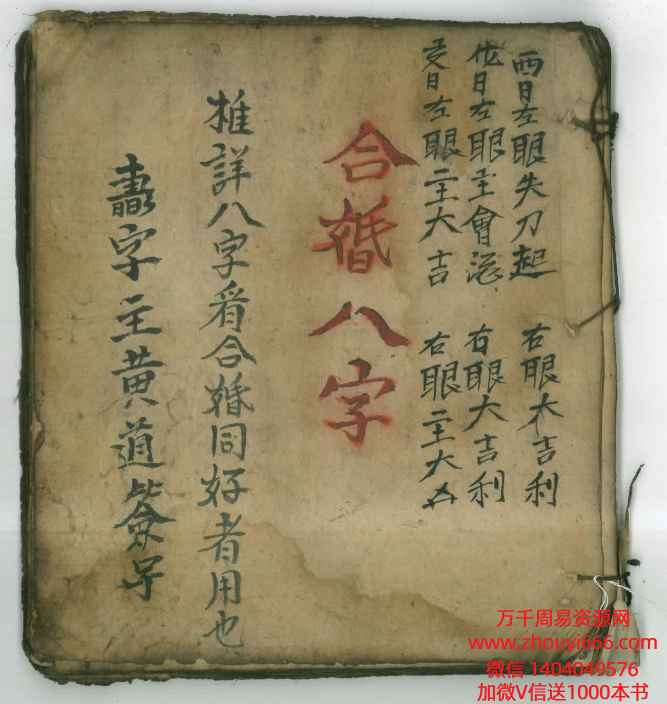 酉日左眼失刀起 右眼大吉利
戌日左眼主會 右眼大吉利
亥日左眼主大吉 右眼主大凶
合婚八字
推詳八字看合婚同好者用也
字主黄道
万千周易资源网
www.zhouyi666.com
微信 1404049576
加微V信送1000本书